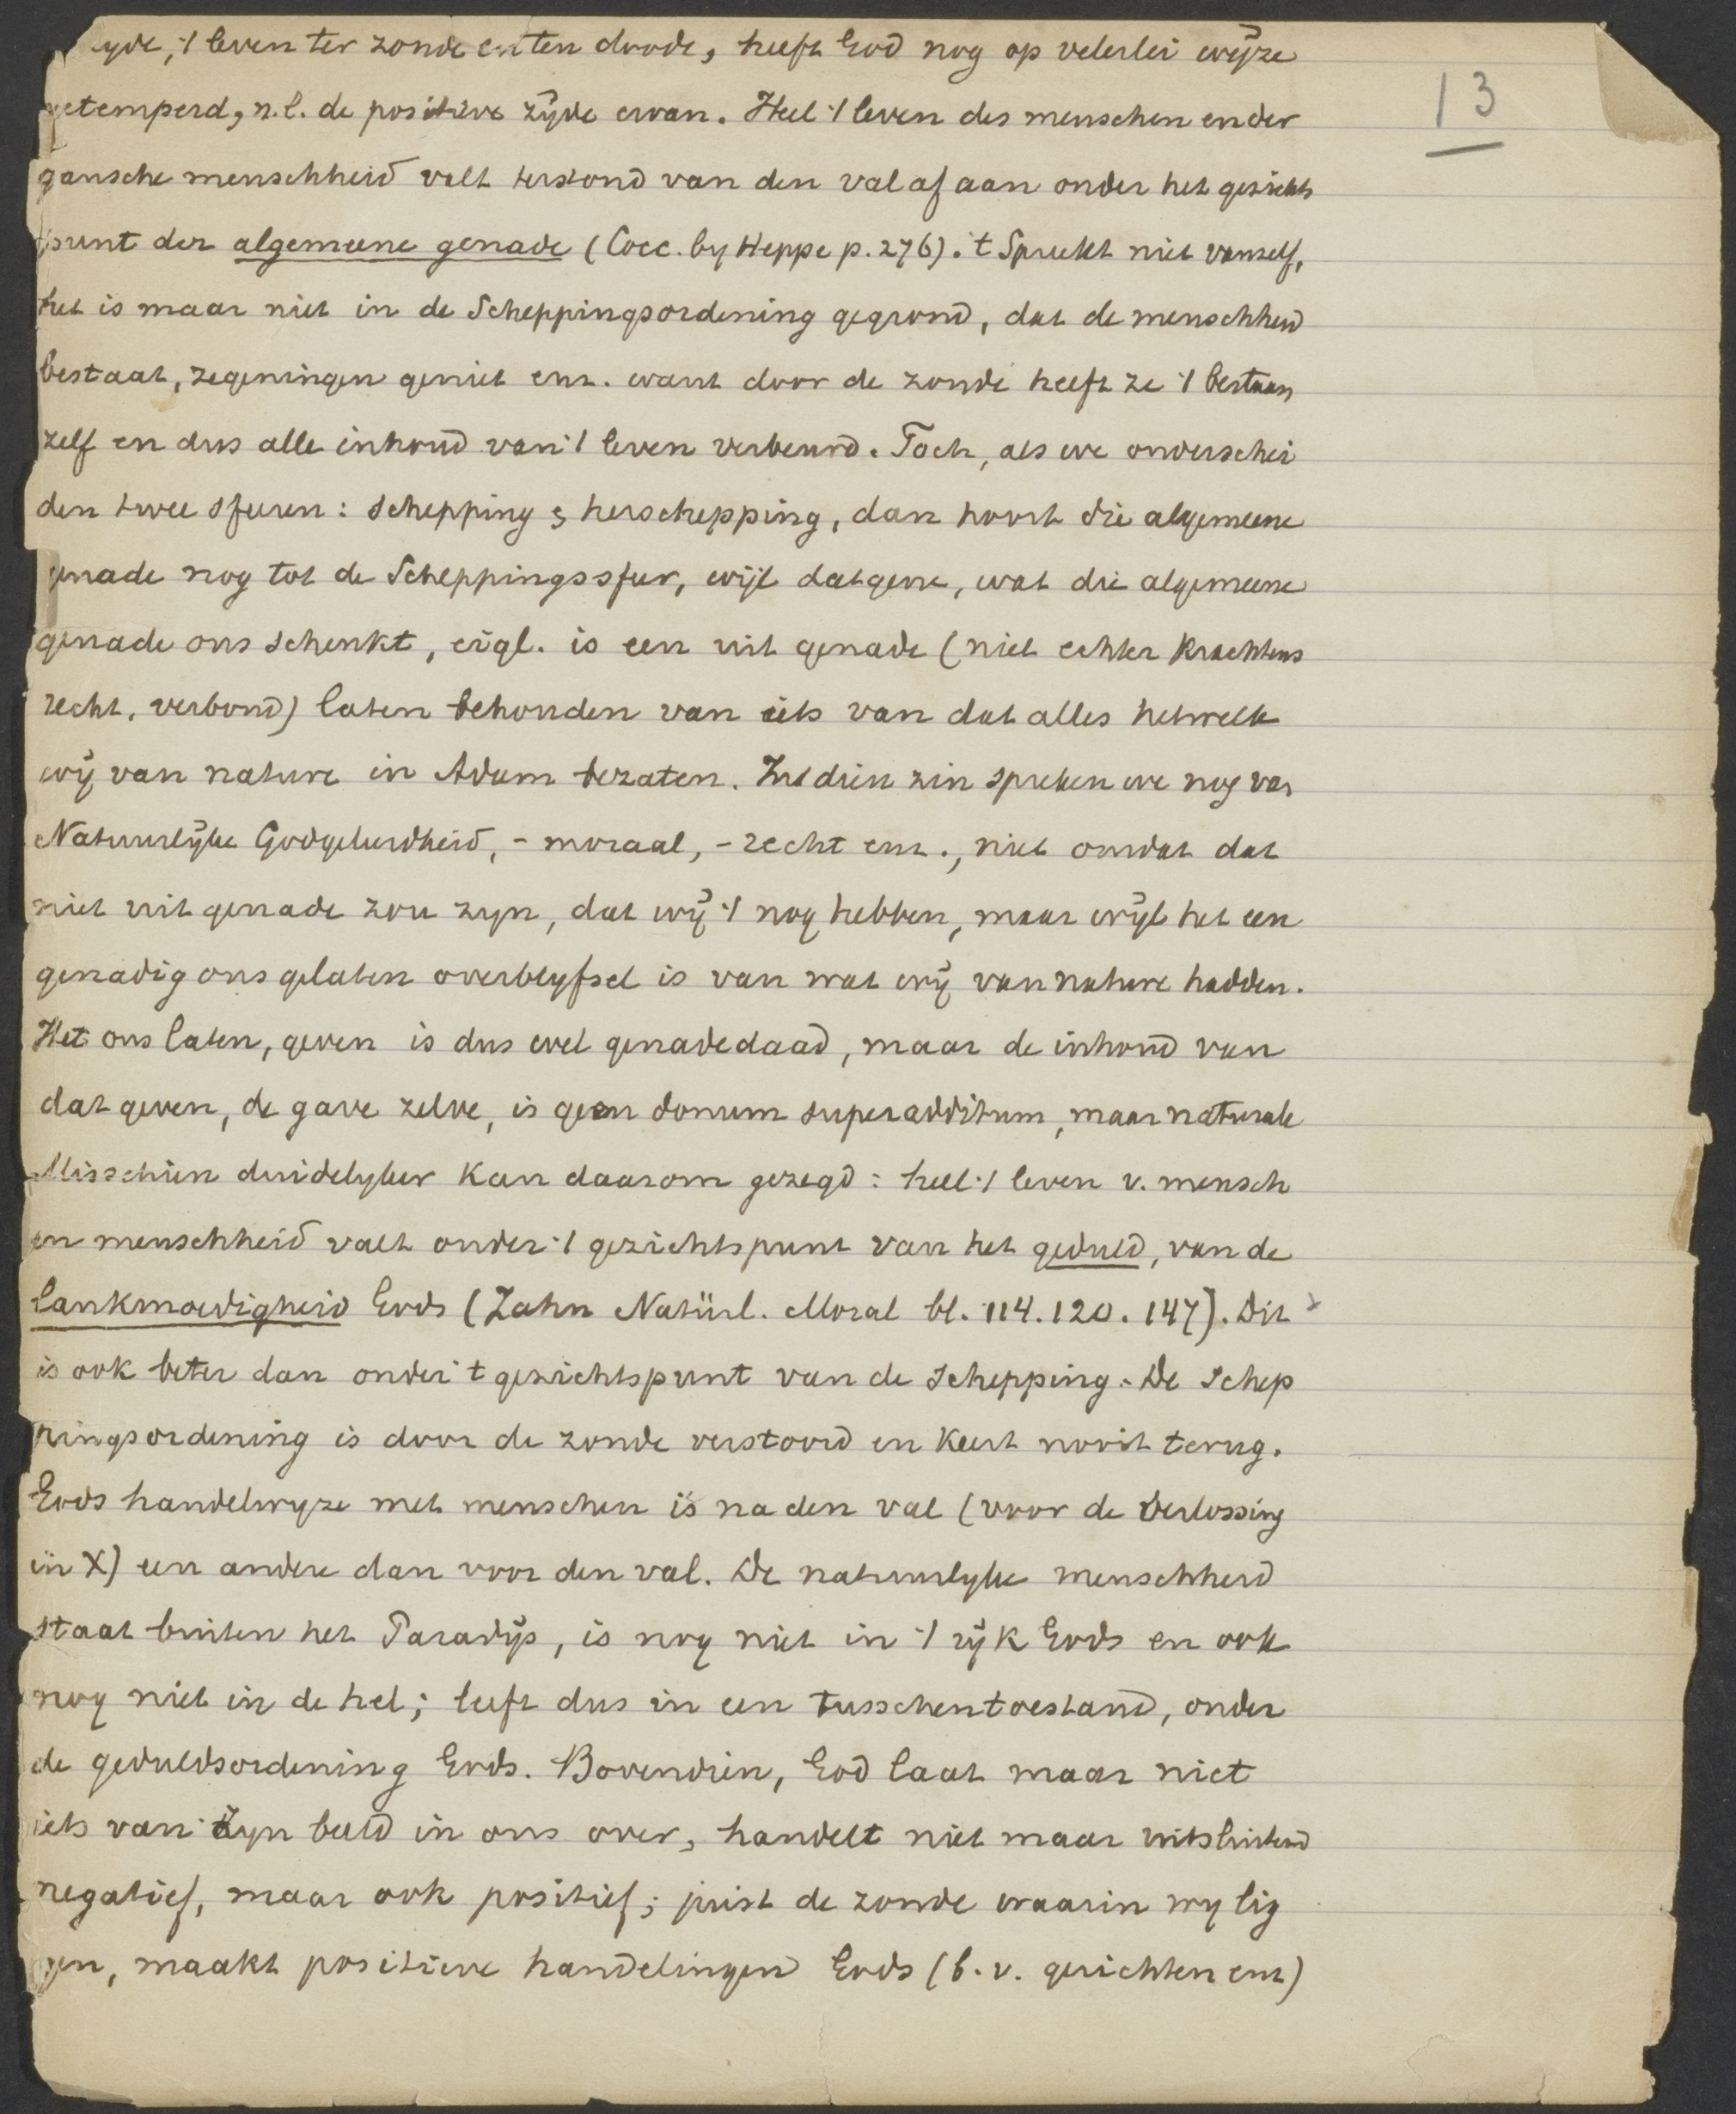 zyde, 't leven ter zonde en ten doode, heeft God nog op velerlei wijze
13
getemperd, n.l. de positieve zijde ervan. Heel 't leven des menschen en der
gansche menschheid valt terstond van den val af aan onder het gezichts
punt der algemeene genade (Cocc. by Heppe p. 276). 't Spreekt niet vanzelf,
het is maar niet in de Scheppingsordening gegrond, dat de menschheid
bestaat, zegeningen geniet enz. want door de zonde heeft ze 't bestaan
zelf en dus alle inhoud van 't leven verbeurd. Toch, als we onderschei
den twee sferen: schepping & herschepping, dan hoort die algemeene
genade nog tot de Scheppingssfeer, wijl datgene, wat die algemeene
genade ons schenkt, eigl. is een uit genade (niet echter krachtens
recht, verbond) laten behouden van iets van dat alles hetwelk
wij van nature in Adam bezaten. In dien zin spreken we nog van
Natuurlijke Godgeleerdheid, - moraal, - recht enz., niet omdat dat
niet uit genade zou zyn, dat wij 't nog hebben, maar wijl het een
genadig ons gelaten overblyfsel is van wat wij van nature hadden.
Het ons laten, geven is dus wel genadedaad, maar de inhoud van
dat geven, de gave zelve, is geen donum superadditum, maar naturale
Misschien duidelyker kan daarom gezegd: heel 't leven v. mensch
en menschheid valt onder 't gezichtspunt van het geduld, van de
lankmoedigheid Gods (Zahn Natürl. Moral bl. 114. 120. 147). Dit
is ook beter dan onder 't gezichtspunt van de schepping. De Schep
pingsordening is door de zonde verstoord en keert nooit terug.
Gods handelwyze met menschen is na den val (voor de Verlossing
in X) een andere dan voor den val. De natuurlyke menschheid
staat buiten het Paradijs, is nog niet in 't rijk Gods en ook
nog niet in de hel; leeft dus in een tusschentoestand, onder
de geduldsordening Gods. Bovendien, God laat maar niet
iets van Zyn beeld in ons over, handelt niet maar uitsluitend
negatief, maar ook positief; juist de zonde waarin wy lig
gen, maakt positieve handelingen Gods (b.v. gerichten enz)